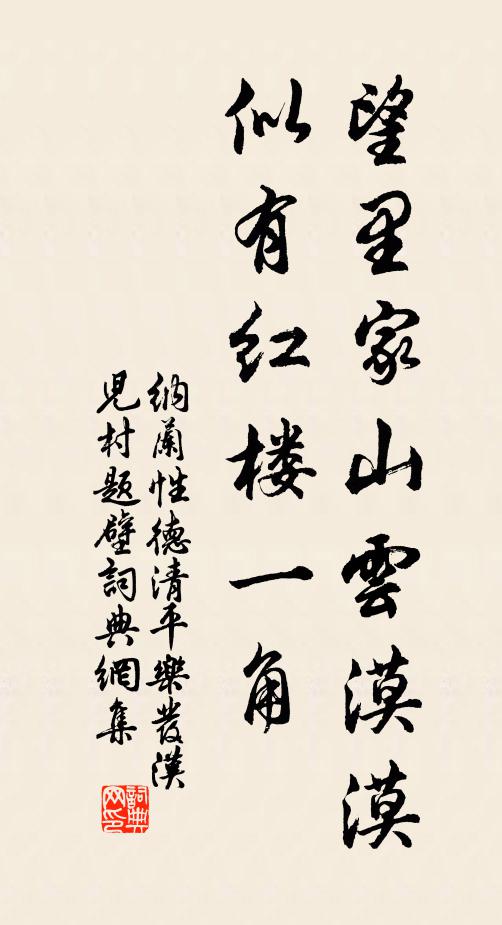 望里家山雲漠漠
似有红楼一角
纳蘭性德清平樂發漢
児村题壁詞典網集
詞典网印